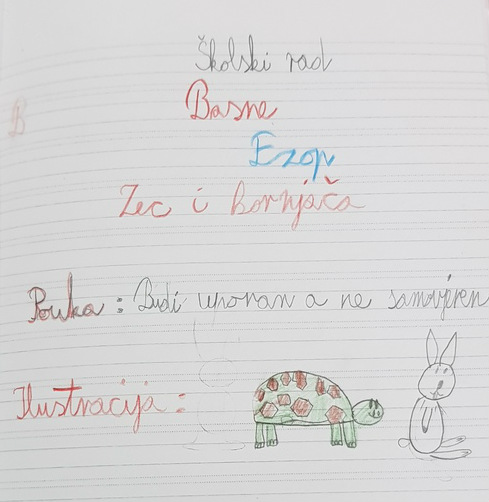 Školski rad
Basne
Ezop
Zec i kornjača
Pouka: Budi uporan a ne samovjeren
Ilustracija: